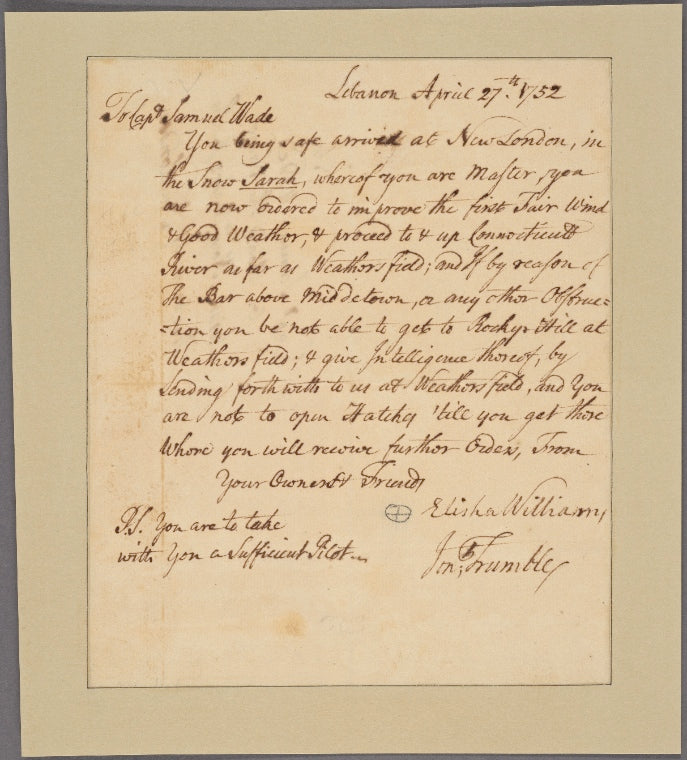 Lebanon April 27.th 1752
To Capt Samuel Wade
You being safe arrived at New London, in
the Snow Sarah, whereof you are Master, you
are now ordered to improve the first Fair Wind
& Good Weather, & proceed to & up Connecticutt
River as far as Weathersfield; and If by reason of
the Bar above Middetown, or any other Obstruc=
=tion you be not able to get to Rocky=Hill at
Weathersfield; & give Intelligence thereof, by
sending forthwith to us at Weathersfield, and You
are not to open Hatches 'till you get there
Where you will receive further Orders, From
Your Owners & Friends
Elisha Williams
P.S. You are to take
with You a Sufficient Pilot
Jonth Trumble